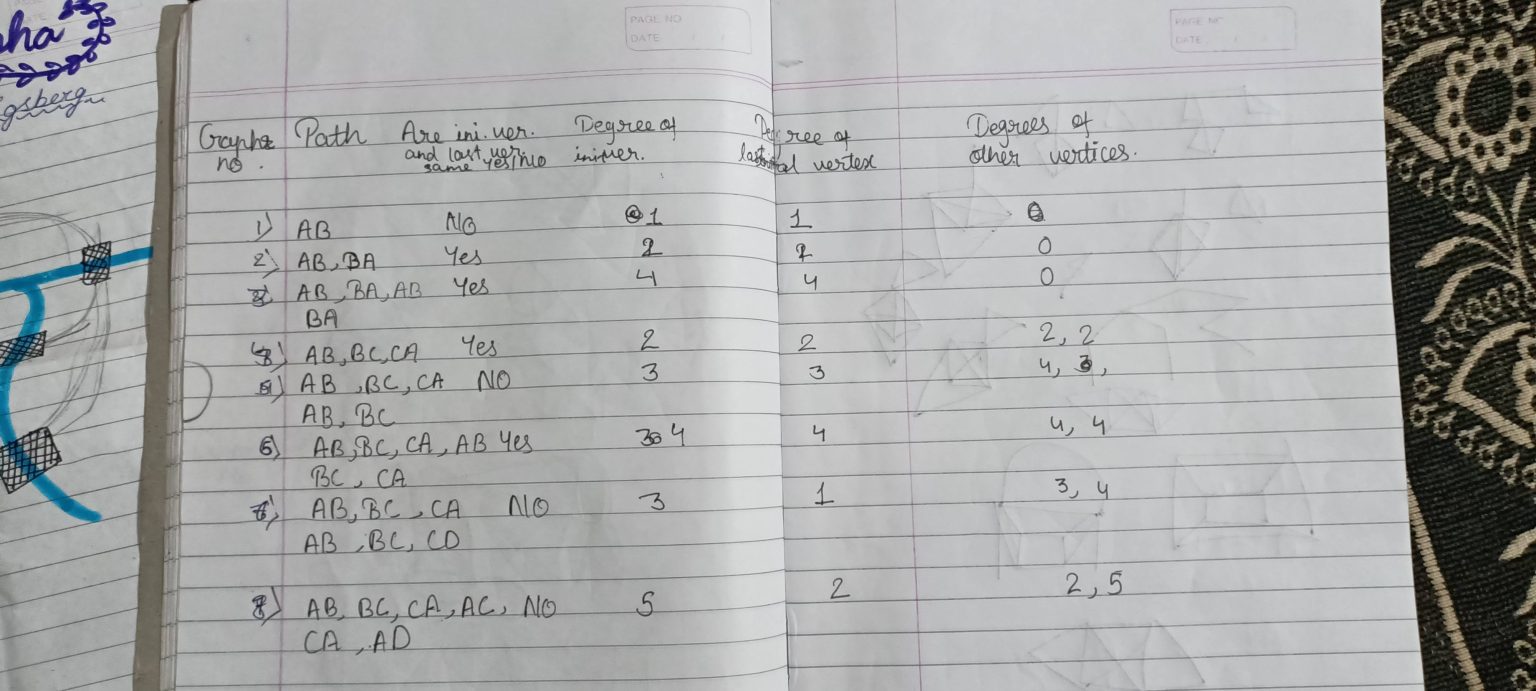 ha
gsberg
PAGE NO
DATE
PAGE NO
DATE
Path Are ini. ver. Degree of Degree of Degrees of
no. and last ver. ini.ver. vertex other vertices.
same Yes/NO
1) AB NO 1 1
2) AB, BA Yes 2 2 0
AB, BA, AB Yes 4 4 0
BA
AB, BC, CA Yes 2 2 2, 2
AB, BC, CA NO 3 3 4,
AB, BC
6) AB, BC, CA, AB Yes 4 4 4, 4
BC, CA
AB, BC, CA NO 3 1 3, 4
AB, BC, CD
AB, BC, CA, AC, NO 5 2 2, 5
CA, AD